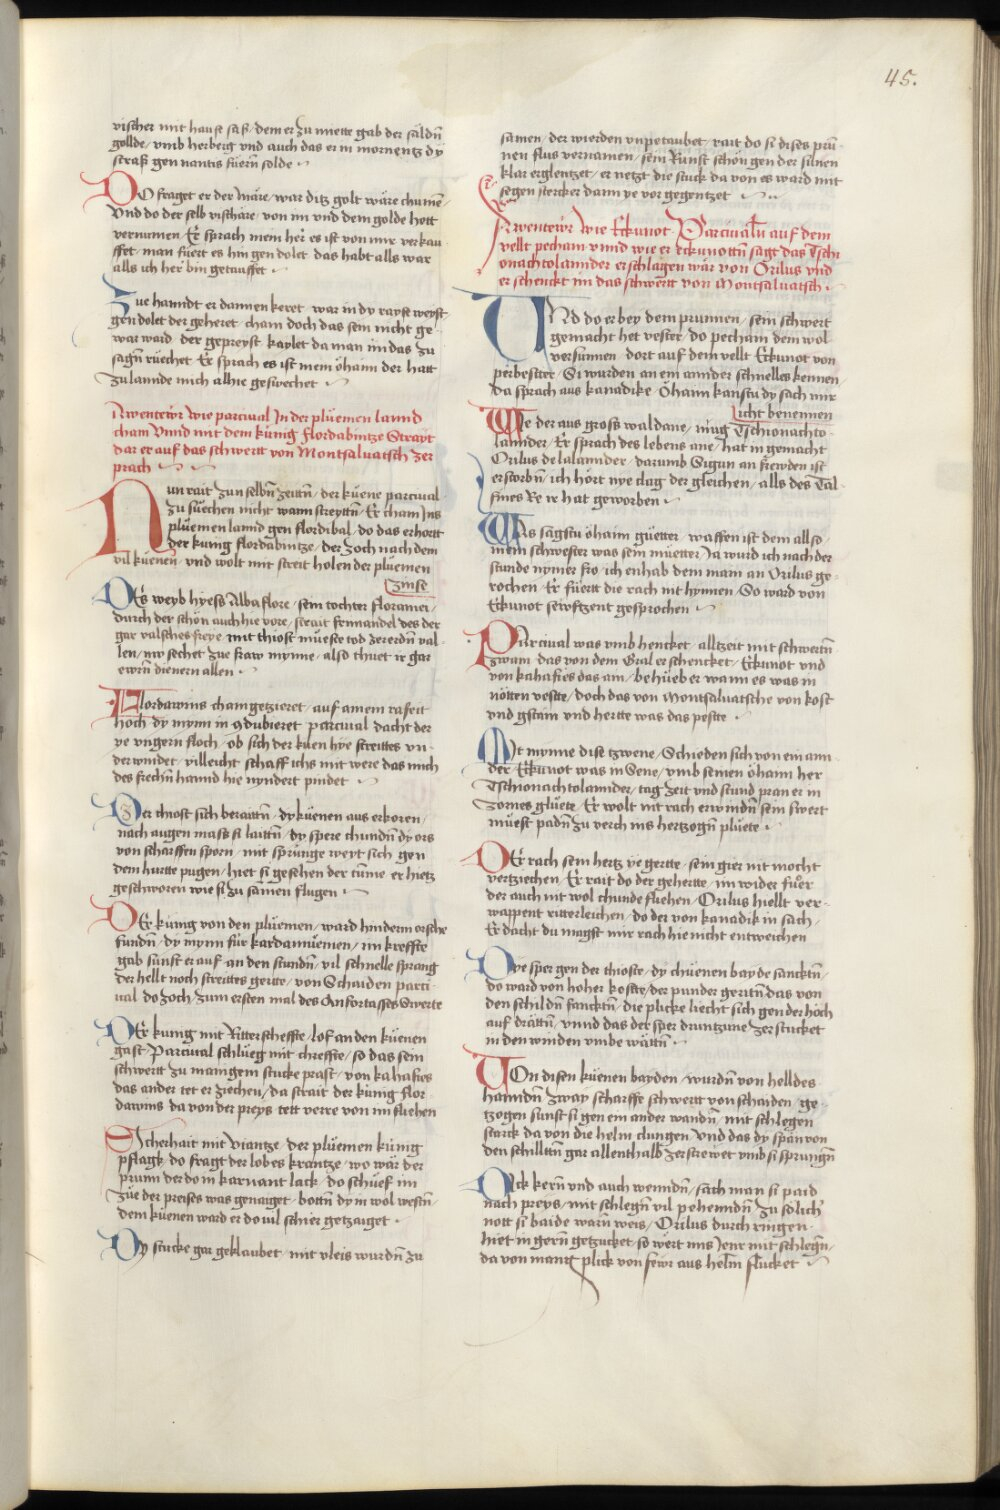 45.
vischer mit hause sass / dem er zu miette gab der saldn̄
gollde / vmb herberg vnd auch das er in mornentz dy
strass gen nantis fuern solde
DO fraget er der maïe / war ditz golt wäre chumē
Vnd do der selb vischäre / von im vnd dem golde hett
vernumen / Er sprach mein her es ist von mir verkau
ffet / man füert es hin gen dolet / das habt alls war
alls ich her bin getauffet
Zue hanndt er dannen keret / war in dy rayse weyst
gen dolet der geheret / cham doch das sein nicht ge
war ward / der gepreyst kaylet da man im das zu
sagn̄ ruechet / Er sprach es ist mein öhaim der hatt
zu lannde mich alhie geswechet
Awentewr wie parcival In der plüemen lannd
cham Vnnd mit dem künig flordabintze Strayt
dar er auf das schwertt von Montsaluatsch zer
prach
Nun rait zun selbn̄ zeittn̄ / der küene parcival
zu süechen nicht wann streyttn̄ / Er cham Ins
plüemen lannd gen flordibal / do das erhortt
der kunig flordabintze / der zoch nach dem
vil küenen / vnd wolt mit streit holen der pluemen
zinse
Des weyb hyess Albaflore / sein tochter floramei /
durch der schön auch hie vore / strait fernandel des der
gar valsches freye / mit thiost mueste tod zererdn̄ val
len / nw sechet zue fraw mynne / also thuet ir gar
ewrn̄ dienern allen
Flordawins cham getzieret / auf ainem rafeit
hoch dy mynn in condubieret / parcival dacht der
ye vngern floch / ob sich der kuen hye streittes vn
der windet / villeicht schaff ichs mit were das mich
des frechn̄ hannd hie nyndert pindet
Der thiost sich beraittn̄ / dy küenen aus erkoren /
nach augen mass si laittn̄ / dy spere chundn̄ dy ors
von scharffen sporn / mit sprünge weyt sich gen
dem hurtte pugen / hiet si gesehen der tume / er hietz
geschworen wie si zu samen flugen
DEr künig von den pluemen / ward hinderm orsche
fundn̄ / dy mynn für kardannüemen / im kreffte
gab sunst er auf an den stundn̄ / vil schnelle sprang
der hellt noch streittes gerte / von Schaiden parci
ual do zoch / zum ersten mal des Anfortasses Swerte
DEr kunig mit Ritterscheffte / lof an den küenen
gast / Parcival schlüeg mit chreffte / so das sein
schwertt zu mangem stucke prast / von kahafies
das ander tet er ziechen / da strait der künig flor
dawins / da von der preys tett verre von im fliehen
Sicherhait mit viantze / der plüemen künig
pflagk / do fragt der lobes krantze / wo wär der
prunn der do in karnant lack / do schuef im
züe der preises was genaiget / bottn̄ dy in wol westn̄ /
dem küenen ward er do vil schier getzaiget
Dy stucke gar geklaubet / mit vleis wurdn̄ zu
samen / der wierden vnpetaubet / rait do si dises prū
nen flus vernamen / sein kunst schön gen der silnen
klar erglentzet / er netzt die stuck da von es ward mit
segen stercker dann ye vor gegentzet
Awentewr Wie Ekunot Parcivaln auf dem
vellt pecham vnnd wie er Ekunottn̄ sagt das Tschi
onachtolannder erschlagen wär von Orilus vnd
er schenckt im das schwertt von Montsaluatsch
UNd do er bey dem prunnen / sein schwert
gemacht het vester / do pecham dem wol
versunnen / dort auf dem vellt Ekunot von
perbester / Si wurden an ein annder schnelles kennen /
da sprach aus kanadike / Ohaim kanstu dy sach mir
licht benennen
WIe der aus gross waldane / mag Tschionachto
lannder / Er sprach des lebens ane / hat in gemacht
Orilus de lalannder / darumb Sigun an frewden ist
erstorbn̄ / ich hort nye clag der gleichen / alls des Tal
fines Re ir hat geworben
WAs sagstu öhaim güetter / waffen ist dem allso
mein schwester was sein müetter / Ja wurd ich nach der
stunde nymer fro / ich en hab dem mann an Orilus ge
rochen / Er füertt die rach mit hynnen / So ward von
Ekunot sewfftzent gesprochen
PArcival was vmb hencket / alltzeit mit schwertn̄
zwain / das von dem Gral er schencket / Ekunot vnd
von kahafies das ain / behueb er wann es was in
nötten vestte / doch das von Montsaluatsche von kost
vnd gstain vnd hertte was das peste
Mit mynne dise tzwene / Schieden sich von ein ann
der / Ekunot was in Sene / vmb seinen öhaim her
Tschionachtolannder / tag zeit vnd stund pran er in
zornes glüete / Er wolt mit rach erwindn̄ sein swert
müest padn̄ zu verch ins hertzogn̄ pluete
DEr rach sein hertz ye gertte / sein gier nit mocht
vertziechen / Er rait do der geherte / im wider fuer
der auch nit wol chunde fliehen / Orilus hiellt ver
wappent ritterleichen / do der von kanadik in sach /
Er dacht du magst mir rach hie nicht entweichen
Dye sper gen der thioste / dy chüenen bayde sancktn̄ /
do ward von hoher kostte / der punder geritn̄ das von
den schildn̄ fancktn̄ / die plicke liecht sich gen der höch
auf drättn̄ / vnnd das der sper druntzune zerstucket
in den winden vmbe wattn̄
VOn disen küenen bayden / wurdn̄ von helldes
hanndn̄ / zway scharffe schwertt von schaiden / ge
zogen sunst si gen ein ander wandn̄ / mit schlegen
starck da von die helm clungen / Vnd das dy spän von
den schilltn̄ gar allenthalb zerstrewet vmb si sprungn̄
Dick kern̄ vnd auch wenndn̄ / sach man si paid
nach preys / mit schlegn̄ vil pehenndn̄ / zu sölicher
nott si baide warn̄ weis / Orilus durch ringen
hiet in gern̄ getzucket / so wert ims Jener mit schlegn̄ /
da von manig plick von fewr aus helm flucket